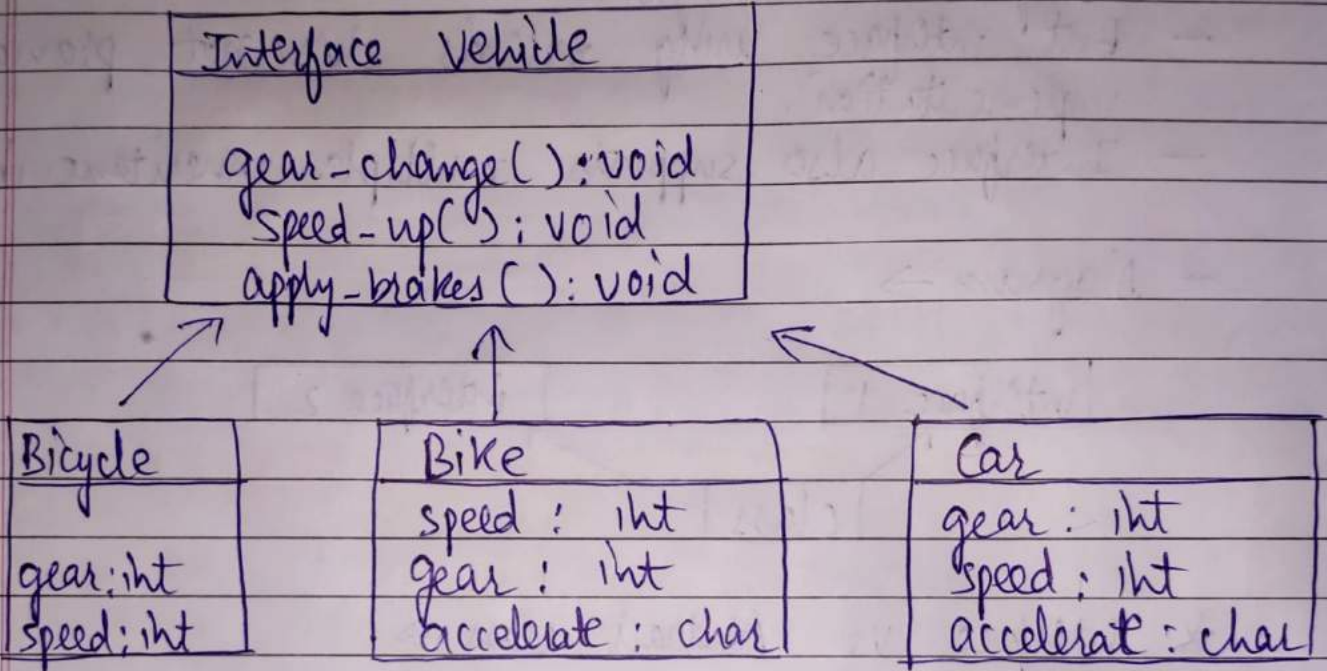 Interface Vehicle
gear-change( ): void
speed-up( ): void
apply-brakes ( ): void
Bicycle
gear: int
speed: int
Bike
speed : int
gear : int
accelerate : char
Car
gear : int
speed : int
accelerate : char